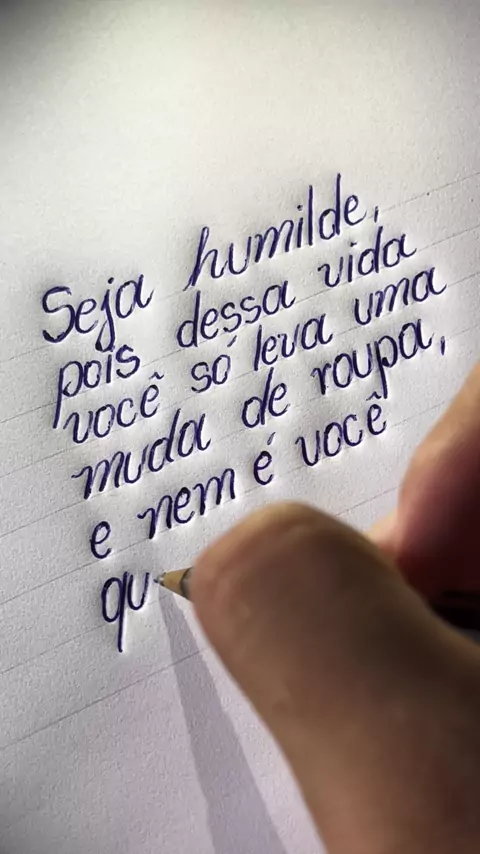 Seja humilde,
pois dessa vida
você só leva uma
muda de roupa,
e nem é você
qu